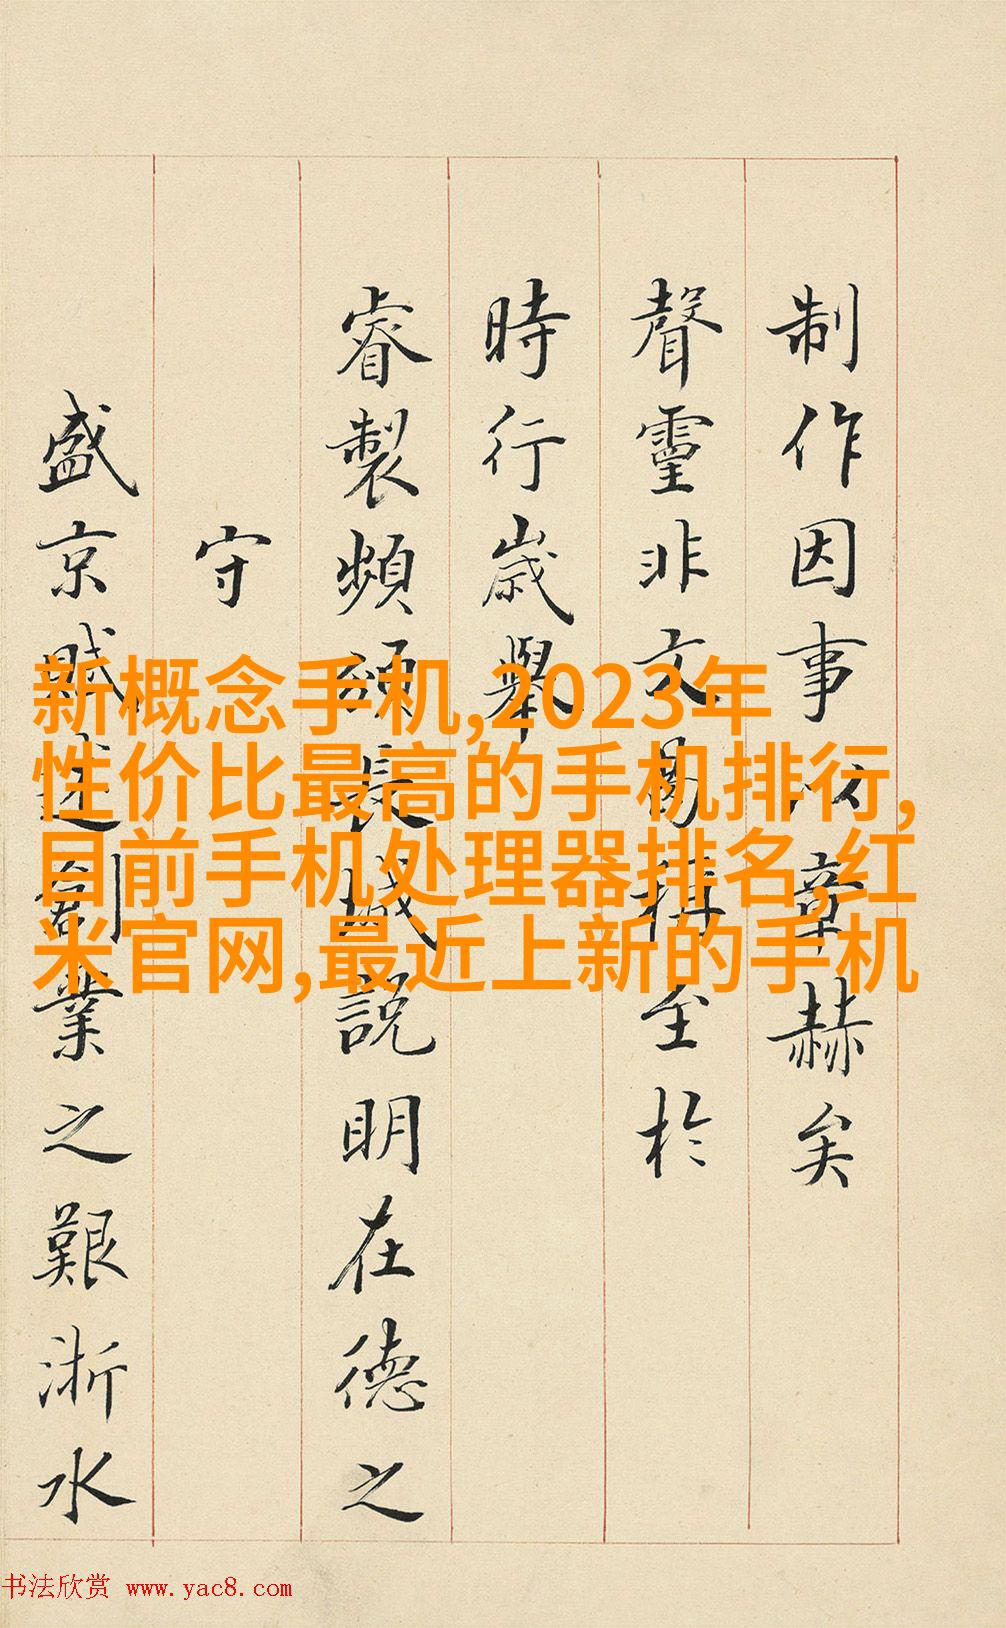 制作因事以章赫矣
聲靈非文曷至於
時行歲舉
睿製頻頒長城說明在德之
守
盛京賦述創業之艱浙水
新概念手机,2023年
性价比最高的手机排行,
目前手机处理器排名,红
米官网,最近上新的手机
书法欣赏 www.yac8.com